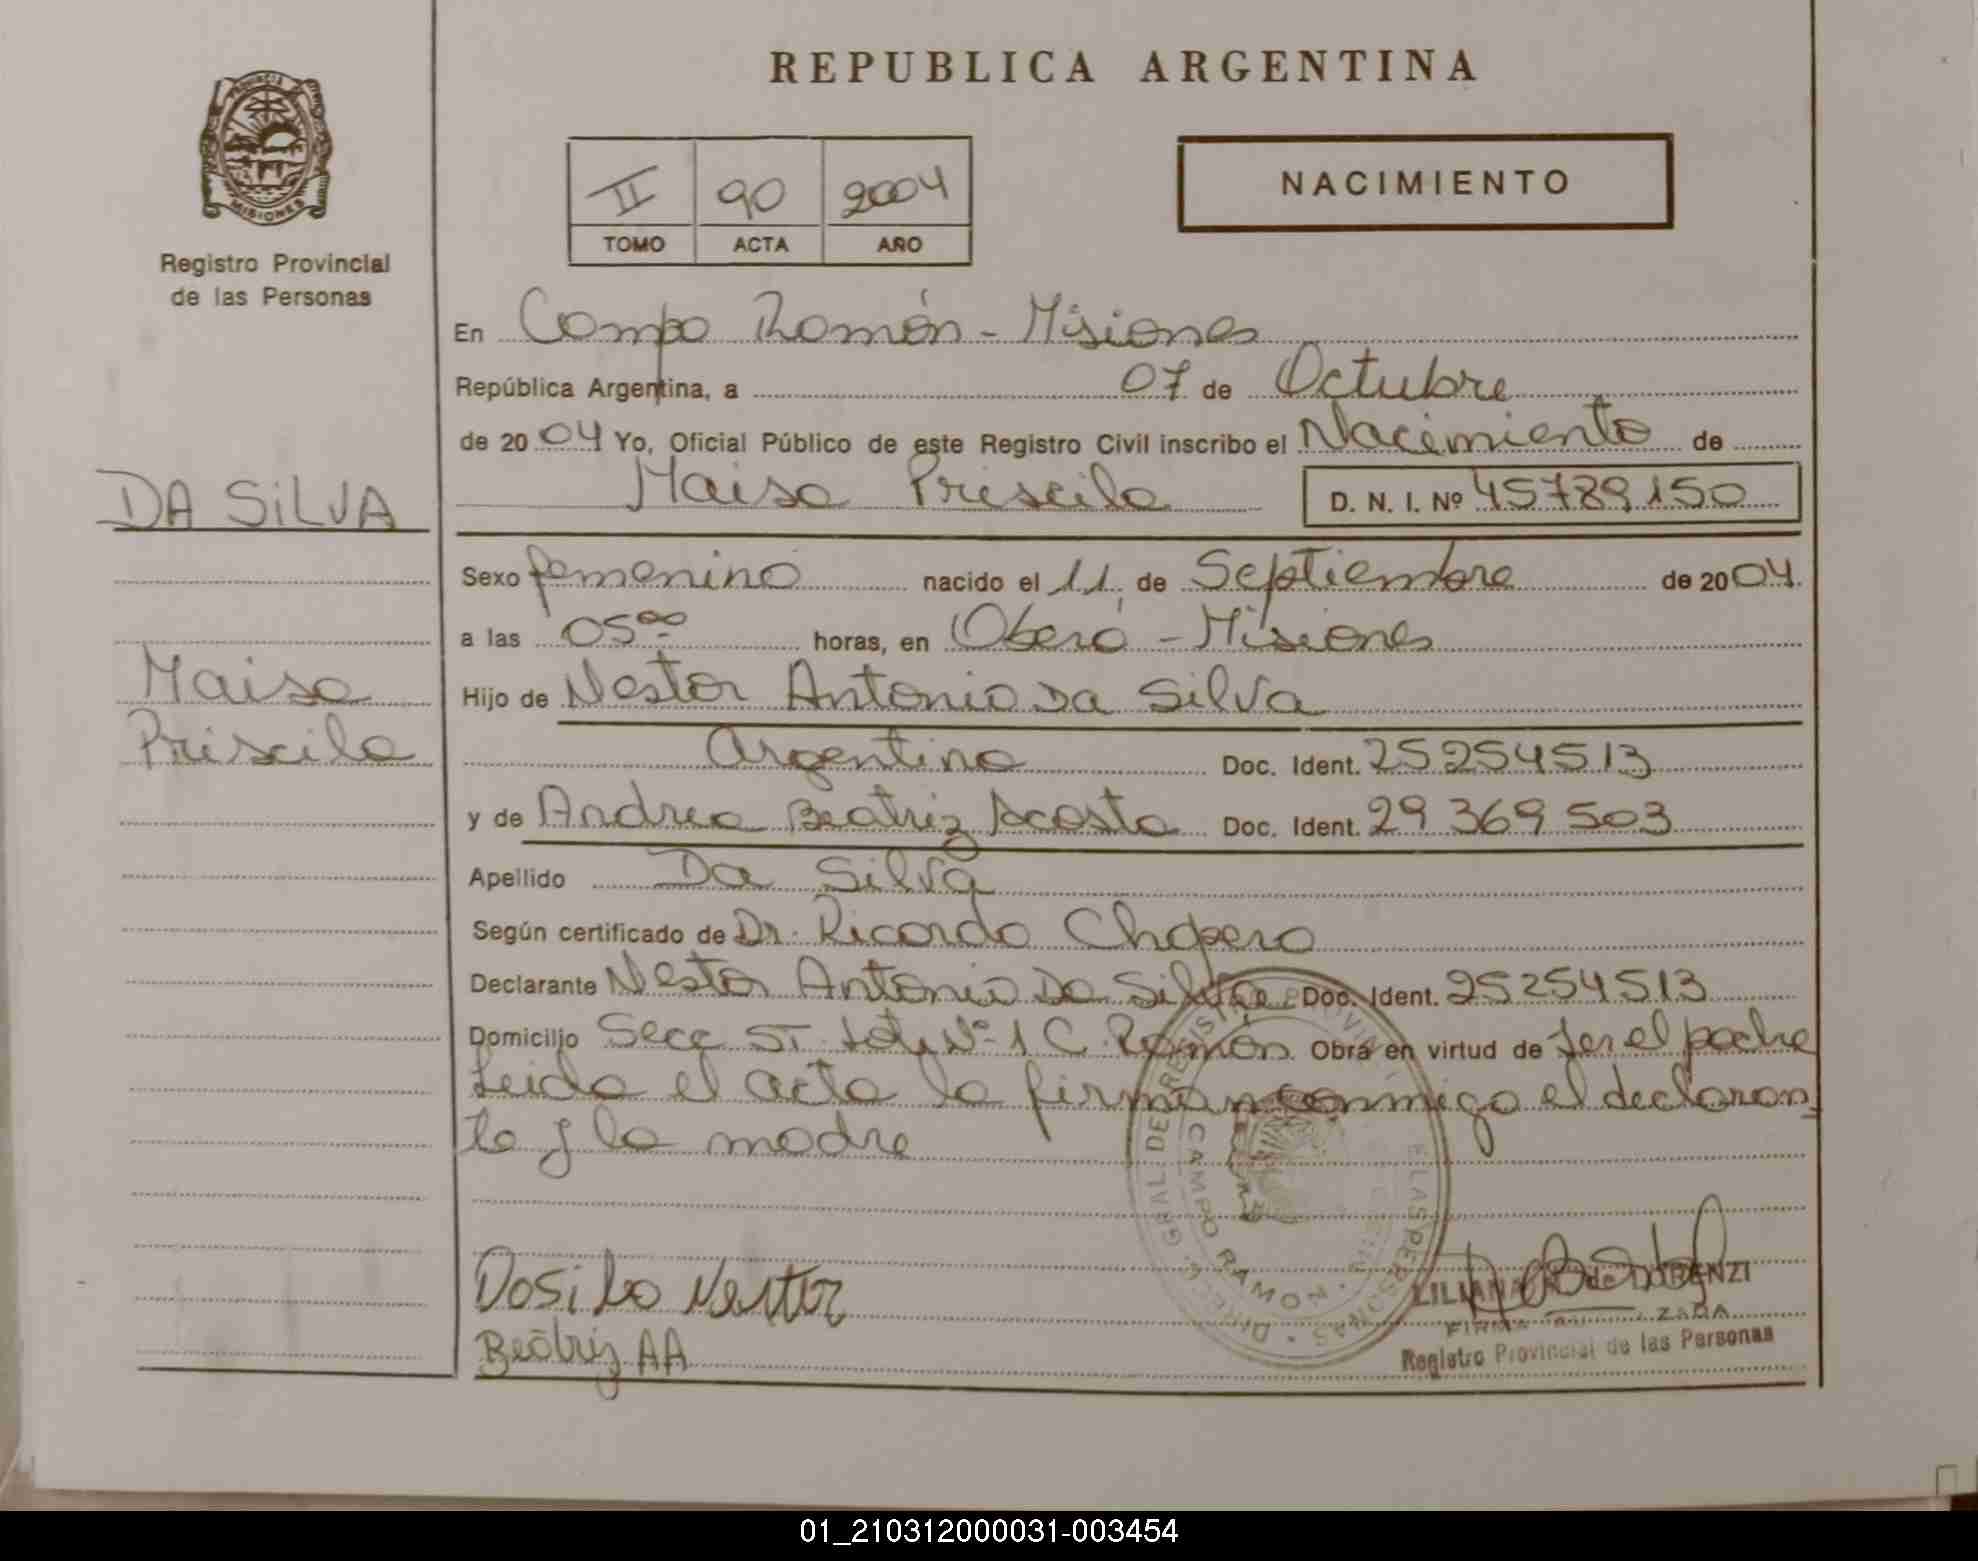 REPUBLICA ARGENTINA
PROVINCIA
MISIONES
Registro Provincial
de las Personas
II 90 2004
TOMO ACTA AÑO
NACIMIENTO
En Campo Ramón - Misiones
República Argentina, a 07 de Octubre
de 2004 Yo, Oficial Público de este Registro Civil inscribo el Nacimiento de
DA SILVA
Maisa Priscila D. N. I. Nº 45789150
Sexo femenino nacido el 11 de Septiembre de 2004
a las 05 00 horas, en Oberá - Misiones
Maisa
Priscila
Hijo de Nestor Antonio Da Silva
Argentino Doc. Ident. 25254513
y de Andrea Beatriz Acosta Doc. Ident. 29 369 503
Apellido Da Silva
Según certificado de Dr. Ricardo
Declarante Nestor Antonio Da Silva Doc. Ident. 25254513
Domicilio Secc Lote Nº 1 C. Ramón. Obra en virtud de ser el padre
Leida el acta la firman conmigo el declaran
te y la madre
DIREC. GRAL DE REGISTRO PROVINCIAL DE LAS PERSONAS
CAMPO RAMON
Dasilva Nestor
Beatriz AA
LILIANA de LORENZI
FIRMA
Registro Provincial de las Personas
01_210312000031-003454